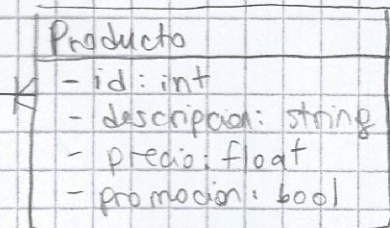 Producto
- id: int
- descripcion: string
- precio: float
- promocion: bool